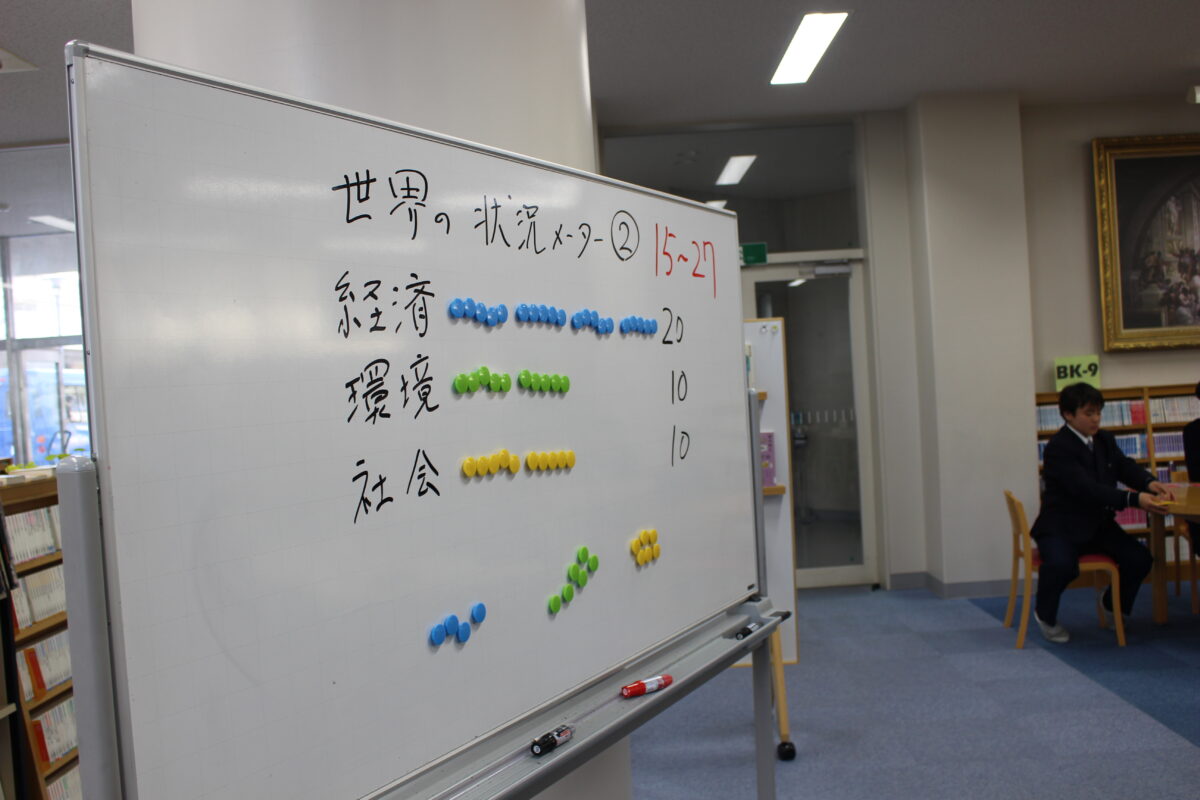 世界の状況メーター② 15~27
経済 20
環境 10
社会 10
BK-9